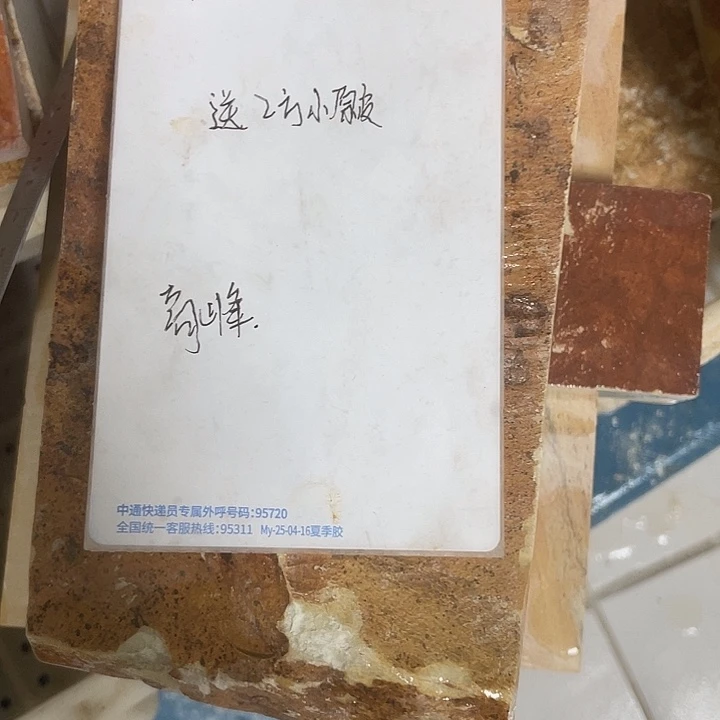 送2方小原皮
高峰.
中通快递员专属外呼号码:95720
全国统一客服热线:95311 My-25-04-16夏季胶